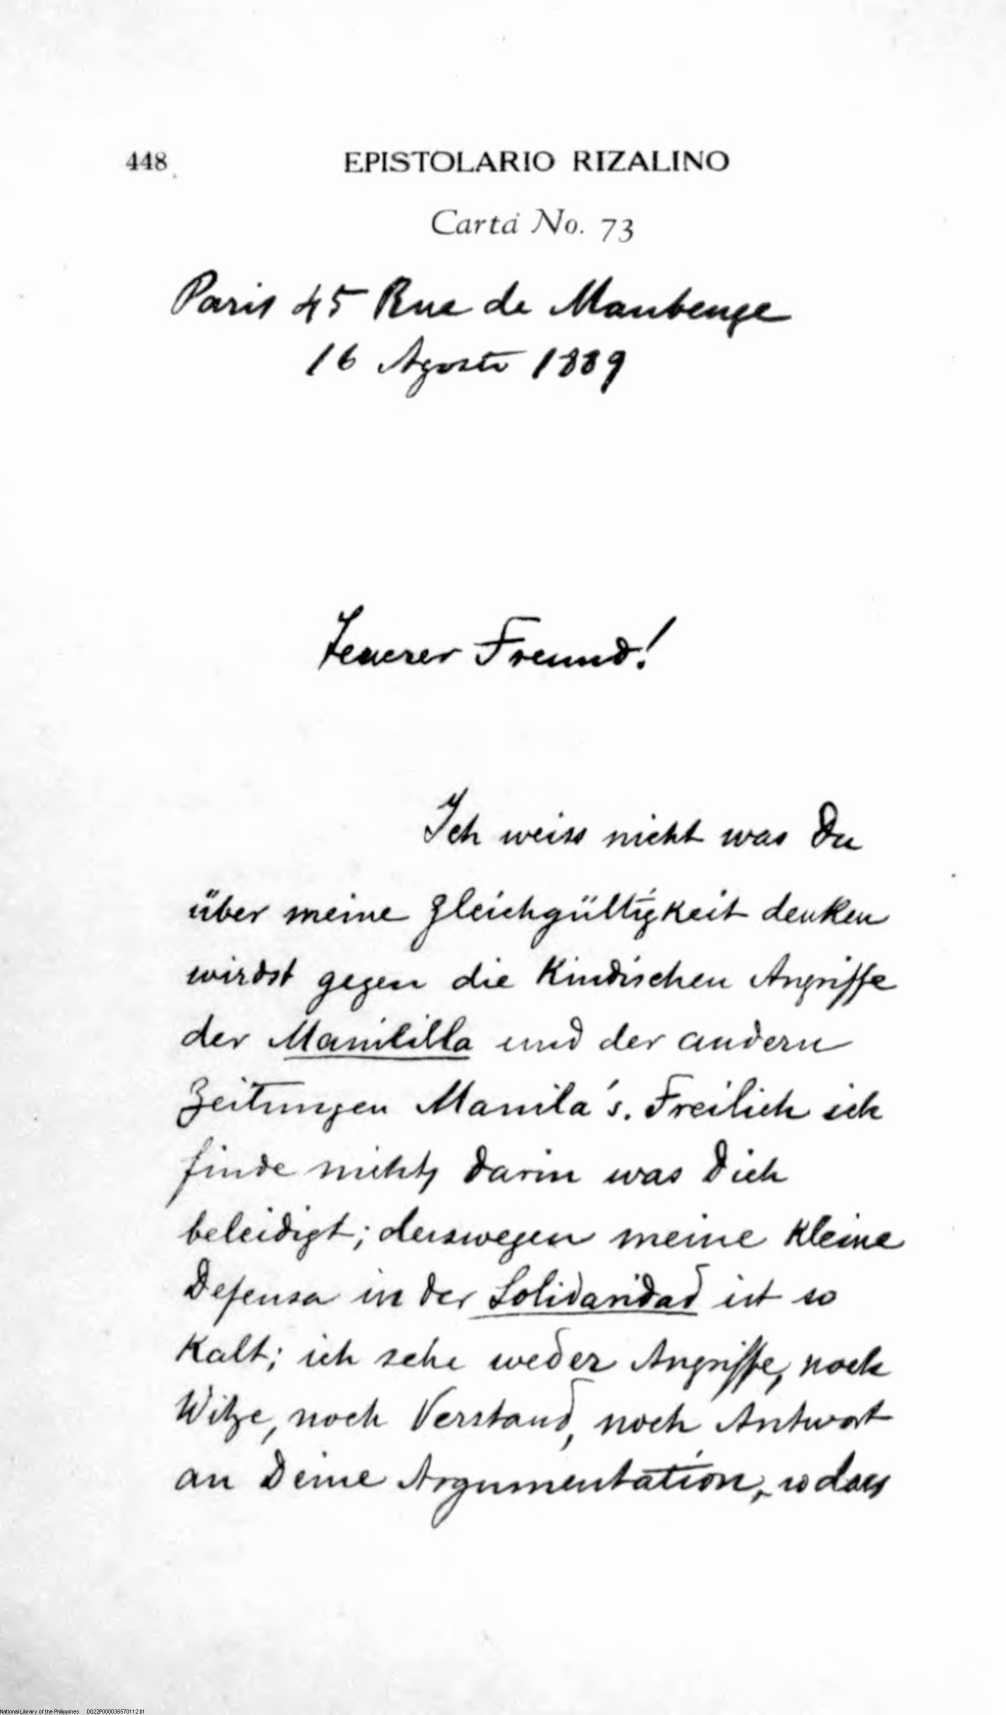 448 EPISTOLARIO RIZALINO
Carta No. 73
Paris 45 Rue de Maubeuge
16 Agosto 1889
Teuerer Freund!
Ich weiss nicht was Du
über meine gleichgültigkeit denken
wirdst gegen die Kindischen Angriffe
der Manililla und der andern
Zeitungen Manila's. Freilich ich
finde nichts darin was Dich
beleidigt; deswegen meine Kleine
Defensa in der Solidaridad ist so
Kalt; ich sehe weder Angriffe, noch
Witze, noch Verstand, noch Antwort
an Deine Argumentation, so dass
National Library of the Philippines